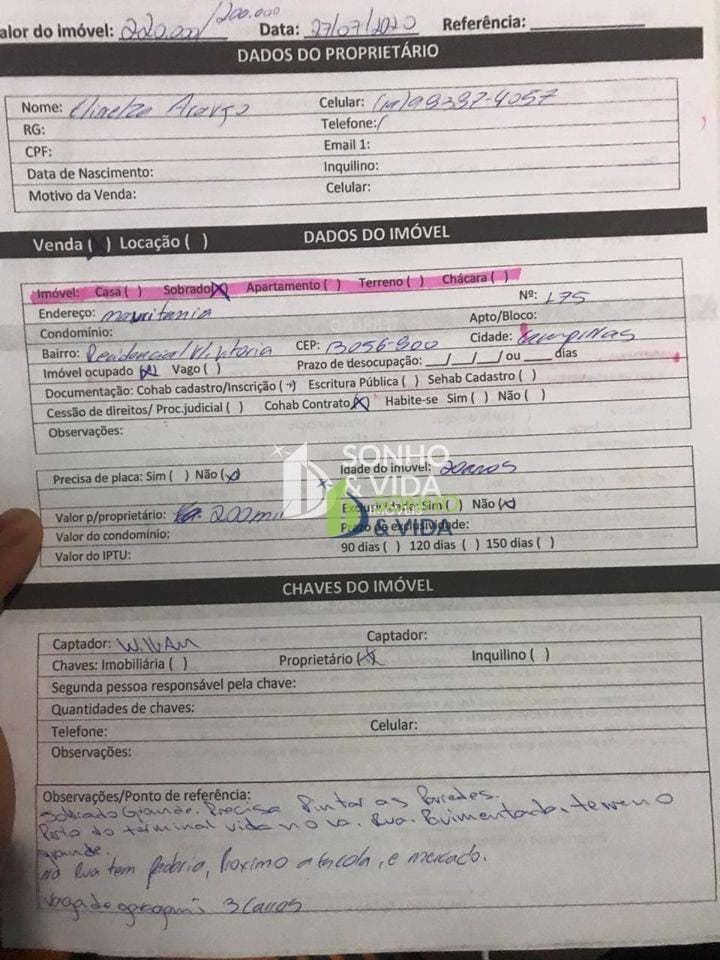 alor do imóvel: 220.000/200.000 Data: 27/07/2020 Referência:
DADOS DO PROPRIETÁRIO
Nome: Elinelza Araujo Celular: (19)99397-4057
RG: Telefone:(
CPF: Email 1:
Data de Nascimento: Inquilino:
Motivo da Venda: Celular:
Venda (X) Locação ( ) DADOS DO IMÓVEL
Imóvel: Casa ( ) Sobrado(X) Apartamento ( ) Terreno ( ) Chácara ( )
Endereço: mauritania Nº: 175
Condomínio: Apto/Bloco:
Bairro: Residencial Vi. Vitoria CEP: 13056-900 Cidade: Campinas
Imóvel ocupado (X) Vago ( ) Prazo de desocupação: ___/___/___/ ou ____ dias
Documentação: Cohab cadastro/Inscrição ( ) Escritura Pública ( ) Sehab Cadastro ( )
Cessão de direitos/ Proc.judicial ( ) Cohab Contrato(X) Habite-se Sim ( ) Não ( )
Observações:
SONHO & VIDA IMÓVEIS
SONHO & VIDA
Precisa de placa: Sim ( ) Não (X) Idade do imóvel: 20anos
Valor p/proprietário: 200mil Exclusividade: Sim ( ) Não (X)
Valor do condomínio: Prazo de exclusividade:
Valor do IPTU: 90 dias ( ) 120 dias ( ) 150 dias ( )
CHAVES DO IMÓVEL
Captador: WillAm Captador:
Chaves: Imobiliária ( ) Proprietário (X) Inquilino ( )
Segunda pessoa responsável pela chave:
Quantidades de chaves:
Telefone: Celular:
Observações:
Observações/Ponto de referência:
Sobrado Grande. Precisa Pintar as Paredes.
Perto do terminal vida nova. Rua. Pavimentada. terreno
grande.
na Rua tem Padaria, Proximo a Escola, e mercado.
Vaga de garagem 3 Carros